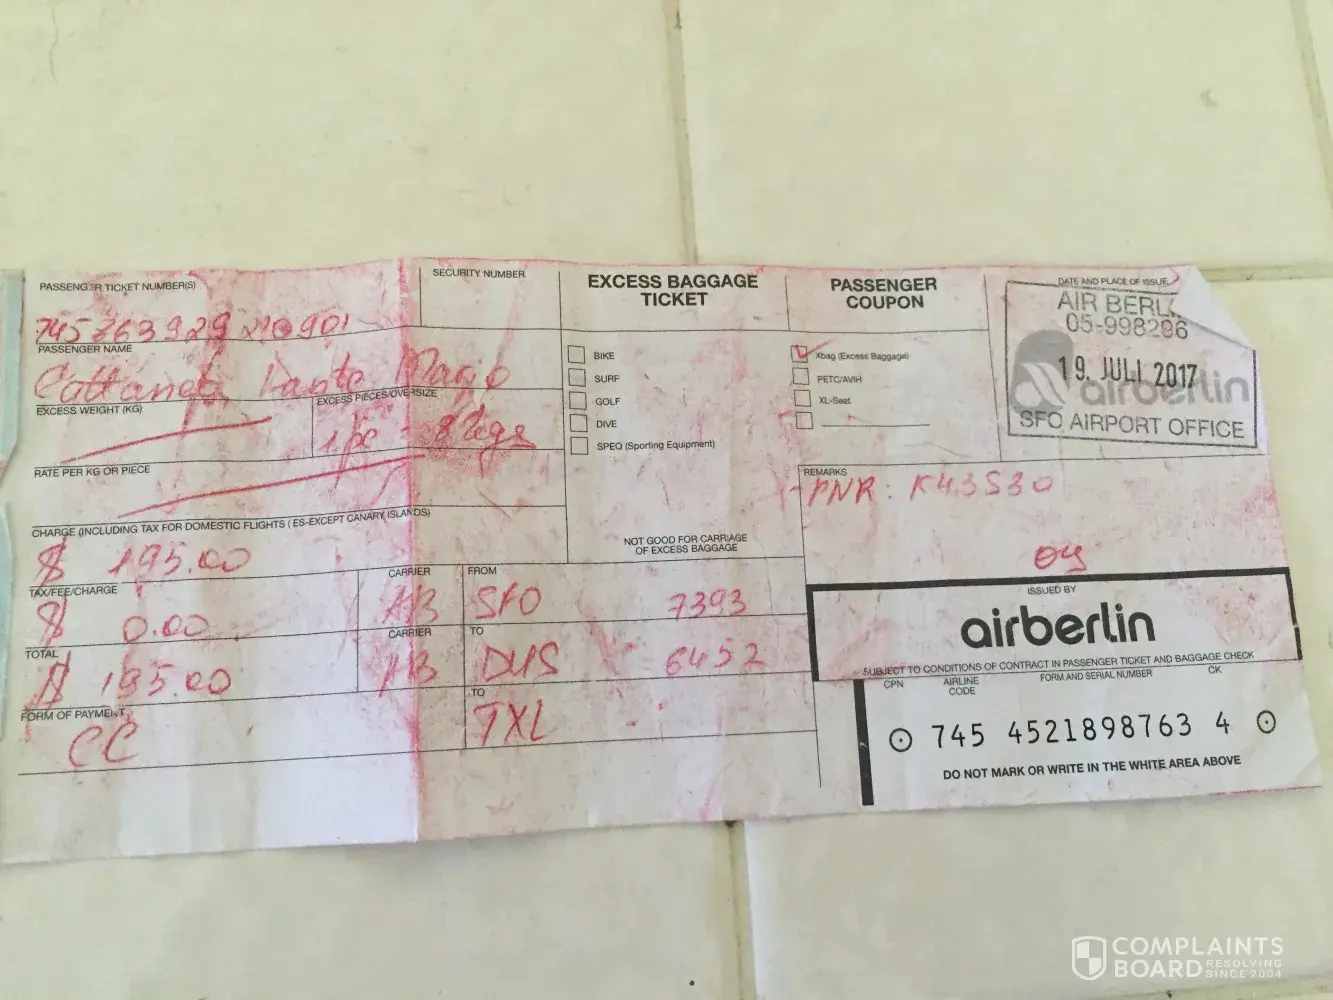 PASSENGER TICKET NUMBER(S)
745 763 929 210901
PASSENGER NAME
Cattaneo Mario
EXCESS WEIGHT (KG)
EXCESS PIECES/OVERSIZE
1 pc
RATE PER KG OR PIECE
CHARGE (INCLUDING TAX FOR DOMESTIC FLIGHTS (ES-EXCEPT CANARY ISLANDS)
$ 195.00
TAX/FEE/CHARGE
$ 0.00
TOTAL
$ 195.00
FORM OF PAYMENT
CC
SECURITY NUMBER
CARRIER
AB
CARRIER
AB
FROM
SFO 7393
TO
DUS 6452
TO
TXL
EXCESS BAGGAGE
TICKET
BIKE
SURF
GOLF
DIVE
SPEQ (Sporting Equipment)
NOT GOOD FOR CARRIAGE
OF EXCESS BAGGAGE
PASSENGER
COUPON
Xbag (Excess Baggage)
PETC/AVIH
XL-Seat
DATE AND PLACE OF ISSUE
AIR BERL
05-998286
19. JULI 2017
airberlin
SFO AIRPORT OFFICE
REMARKS
PNR: K43S30
ISSUED BY
airberlin
SUBJECT TO CONDITIONS OF CONTRACT IN PASSENGER TICKET AND BAGGAGE CHECK
CPN AIRLINE CODE FORM AND SERIAL NUMBER CK
745 4521898763 4
DO NOT MARK OR WRITE IN THE WHITE AREA ABOVE
COMPLAINTS
BOARD RESOLVING
SINCE 2004